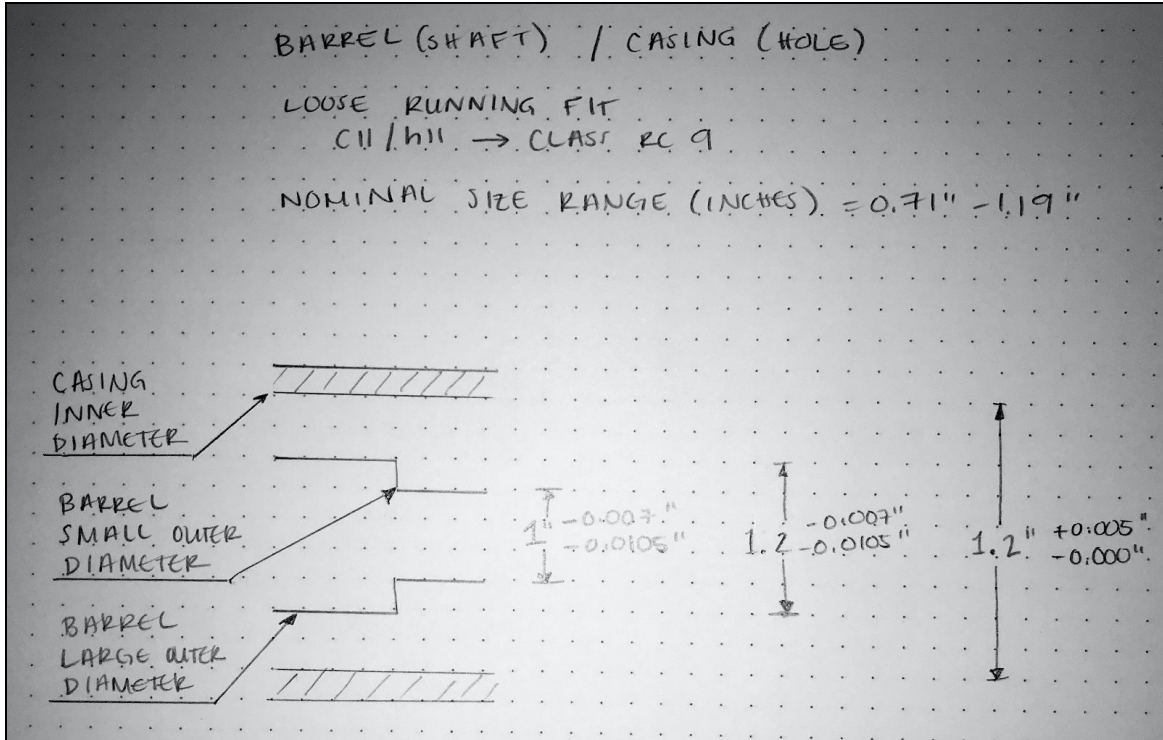 BARREL (SHAFT) / CASING (HOLE)
LOOSE RUNNING FIT
C11/h11 → CLASS RC 9
NOMINAL SIZE RANGE (INCHES) = 0.71" - 1.19"
CASING
INNER
DIAMETER
BARREL
SMALL OUTER
DIAMETER
BARREL
LARGE OUTER
DIAMETER
1" -0.007"
-0.0105"
1.2 -0.007"
-0.0105"
1.2" +0.005"
-0.000"